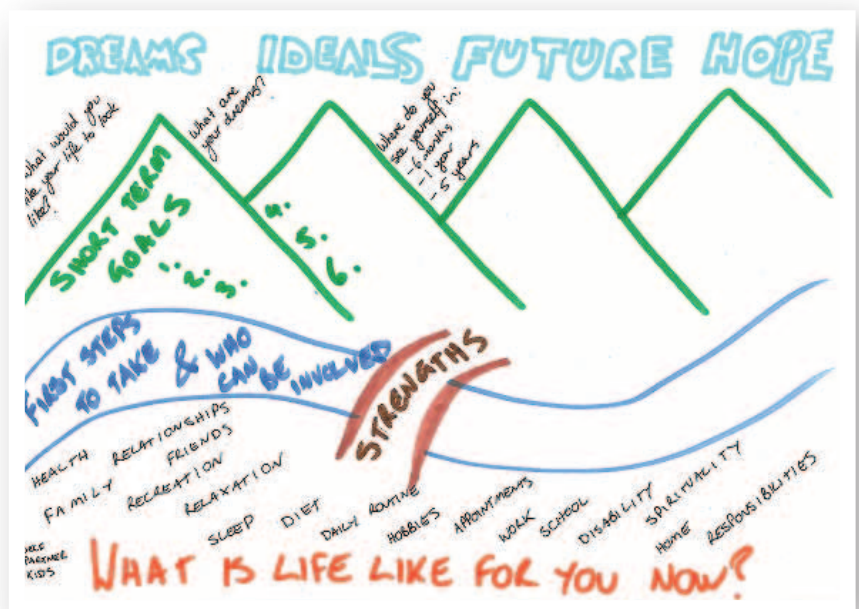 DREAMS IDEALS FUTURE HOPE
What would you
like your life to look
like?
What are
your dreams?
Where do you
see yourself in:
- 6 months
- 1 year
- 5 years
SHORT TERM
GOALS
1.
2.
3.
4.
5.
6.
FIRST STEPS
TO TAKE & WHO
CAN
BE INVOLVED
STRENGTHS
HEALTH
RELATIONSHIPS
FRIENDS
FAMILY
RECREATION
RELAXATION
SLEEP
DIET
DAILY ROUTINE
HOBBIES
APPOINTMENTS
WORK
SCHOOL
DISABILITY
SPIRITUALITY
HOME
RESPONSIBILITIES
PARTNER
KIDS
WHAT IS LIFE LIKE FOR YOU NOW?